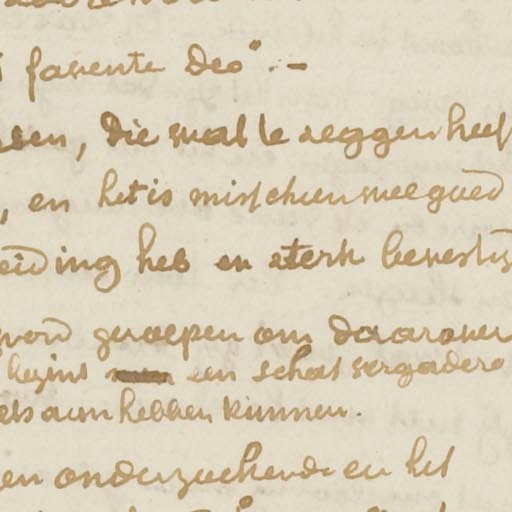 favente deo". –
, die wat te zeggen heef
, en het is misschien wel goed
eiding heb en sterk bevestig
word geroepen om daarover
een schat vergadere
aan hebben kunnen.
en onderzoekende en het